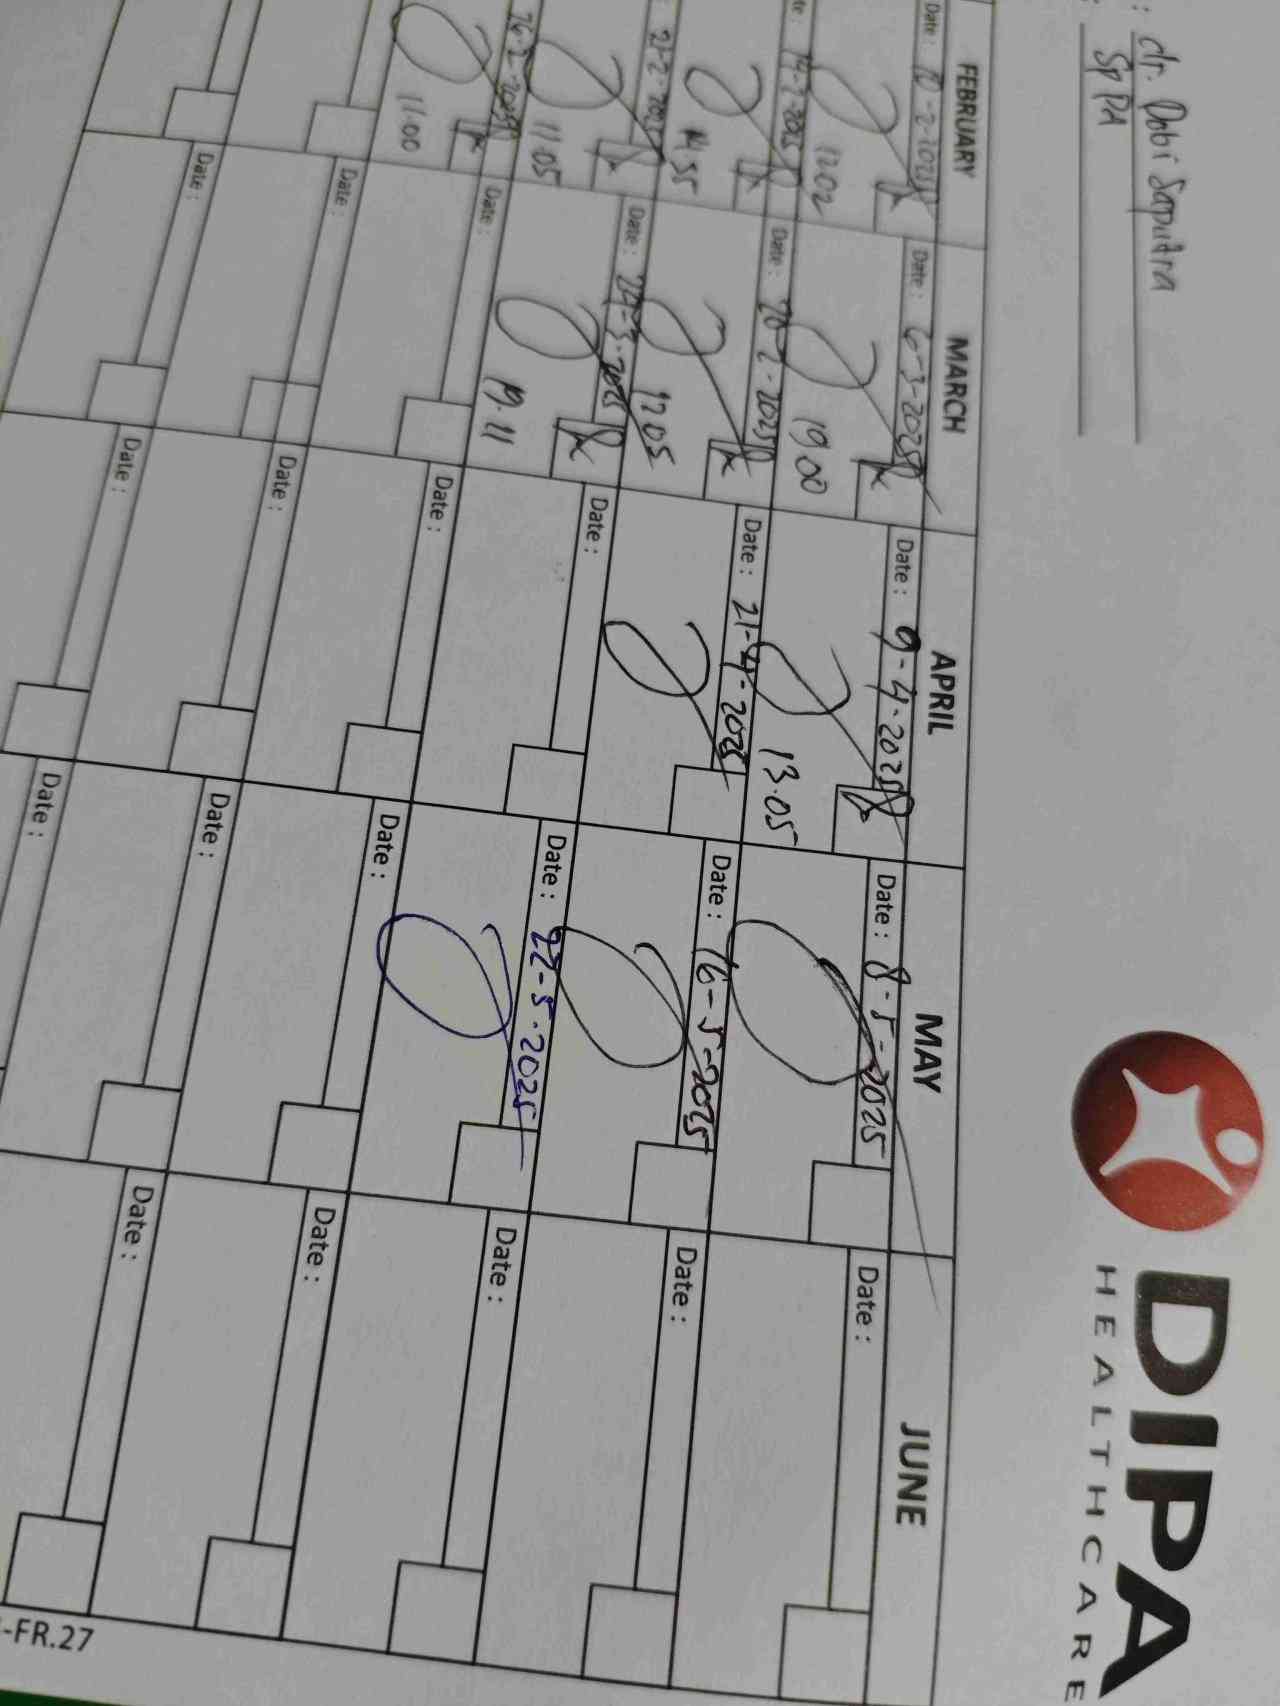 : dr. Dobi Saputra
: Sp PA
DIPA
HEALTHCARE
FEBRUARY MARCH APRIL MAY JUNE
Date : 10-2-2025 Date : 6-3-2025 Date : 9-4-2025 Date : 8-5-2025 Date :
12.02 19.00 13.05
te : 14-2-2025 Date : 20-2-2025 Date : 21-4-2025 Date : 16-5-2025 Date :
14.55 12.05
: 21-2-2025 Date : 22-3-2025 Date : Date : 22-5-2025 Date :
11.05 19.11
26-2-2025 Date : Date : Date : Date :
11.00
Date : Date : Date : Date :
Date : Date : Date :
-FR.27